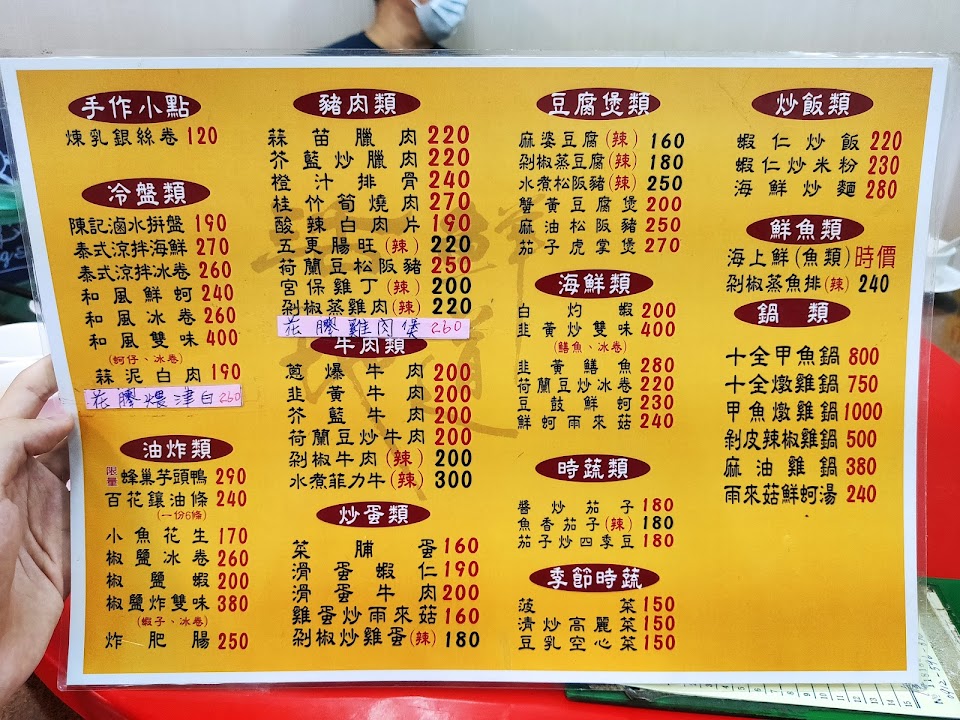 手作小點
煉乳銀絲卷 120
冷盤類
陳記滷水拼盤 190
泰式涼拌海鮮 270
泰式涼拌冰卷 260
和風鮮蚵 240
和風冰卷 260
和風雙味 400
(蚵仔、冰卷)
蒜泥白肉 190
花膠煨津白 260
油炸類
限量 蜂巢芋頭鴨 290
百花鑲油條 240
(一份6條)
小魚花生 170
椒鹽冰卷 260
椒鹽蝦 200
椒鹽炸雙味 380
(蝦子、冰卷)
炸肥腸 250
豬肉類
蒜苗臘肉 220
芥藍炒臘肉 220
橙汁排骨 240
桂竹筍燒肉 270
酸辣白肉片 190
五更腸旺(辣) 220
荷蘭豆松阪豬 250
宮保雞丁(辣) 200
剁椒蒸雞肉(辣) 220
花膠雞肉煲 260
牛肉類
蔥爆牛肉 200
韭黃牛肉 200
芥藍牛肉 200
荷蘭豆炒牛肉 200
剁椒牛肉(辣) 200
水煮菲力牛(辣) 300
炒蛋類
菜脯蛋 160
滑蛋蝦仁 190
滑蛋牛肉 200
雞蛋炒雨來菇 160
剁椒炒雞蛋(辣) 180
豆腐煲類
麻婆豆腐(辣) 160
剁椒蒸豆腐(辣) 180
水煮松阪豬(辣) 250
蟹黃豆腐煲 200
麻油松阪豬 250
茄子虎掌煲 270
海鮮類
白灼蝦 200
韭黃炒雙味 400
(鱔魚、冰卷)
韭黃鱔魚 280
荷蘭豆炒冰卷 220
豆鼓鮮蚵 230
鮮蚵雨來菇 240
時蔬類
醬炒茄子 180
魚香茄子(辣) 180
茄子炒四季豆 180
季節時蔬
菠菜 150
清炒高麗菜 150
豆乳空心菜 150
炒飯類
蝦仁炒飯 220
蝦仁炒米粉 230
海鮮炒麵 280
鮮魚類
海上鮮(魚類)時價
剁椒蒸魚排(辣) 240
鍋類
十全甲魚鍋 800
十全燉雞鍋 750
甲魚燉雞鍋 1000
剝皮辣椒雞鍋 500
麻油雞鍋 380
雨來菇鮮蚵湯 240